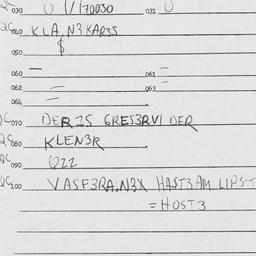 030 V170030 031 0
040 KLA.N3KAR3S
050 $
060 — 061 —
062 = 063 —
064 —
070 DER IS GRES3RVI DER
080 KLEN3R
090 QZZ
100 VASF3RA.N3X HAST3AM LIPST
= HOST3